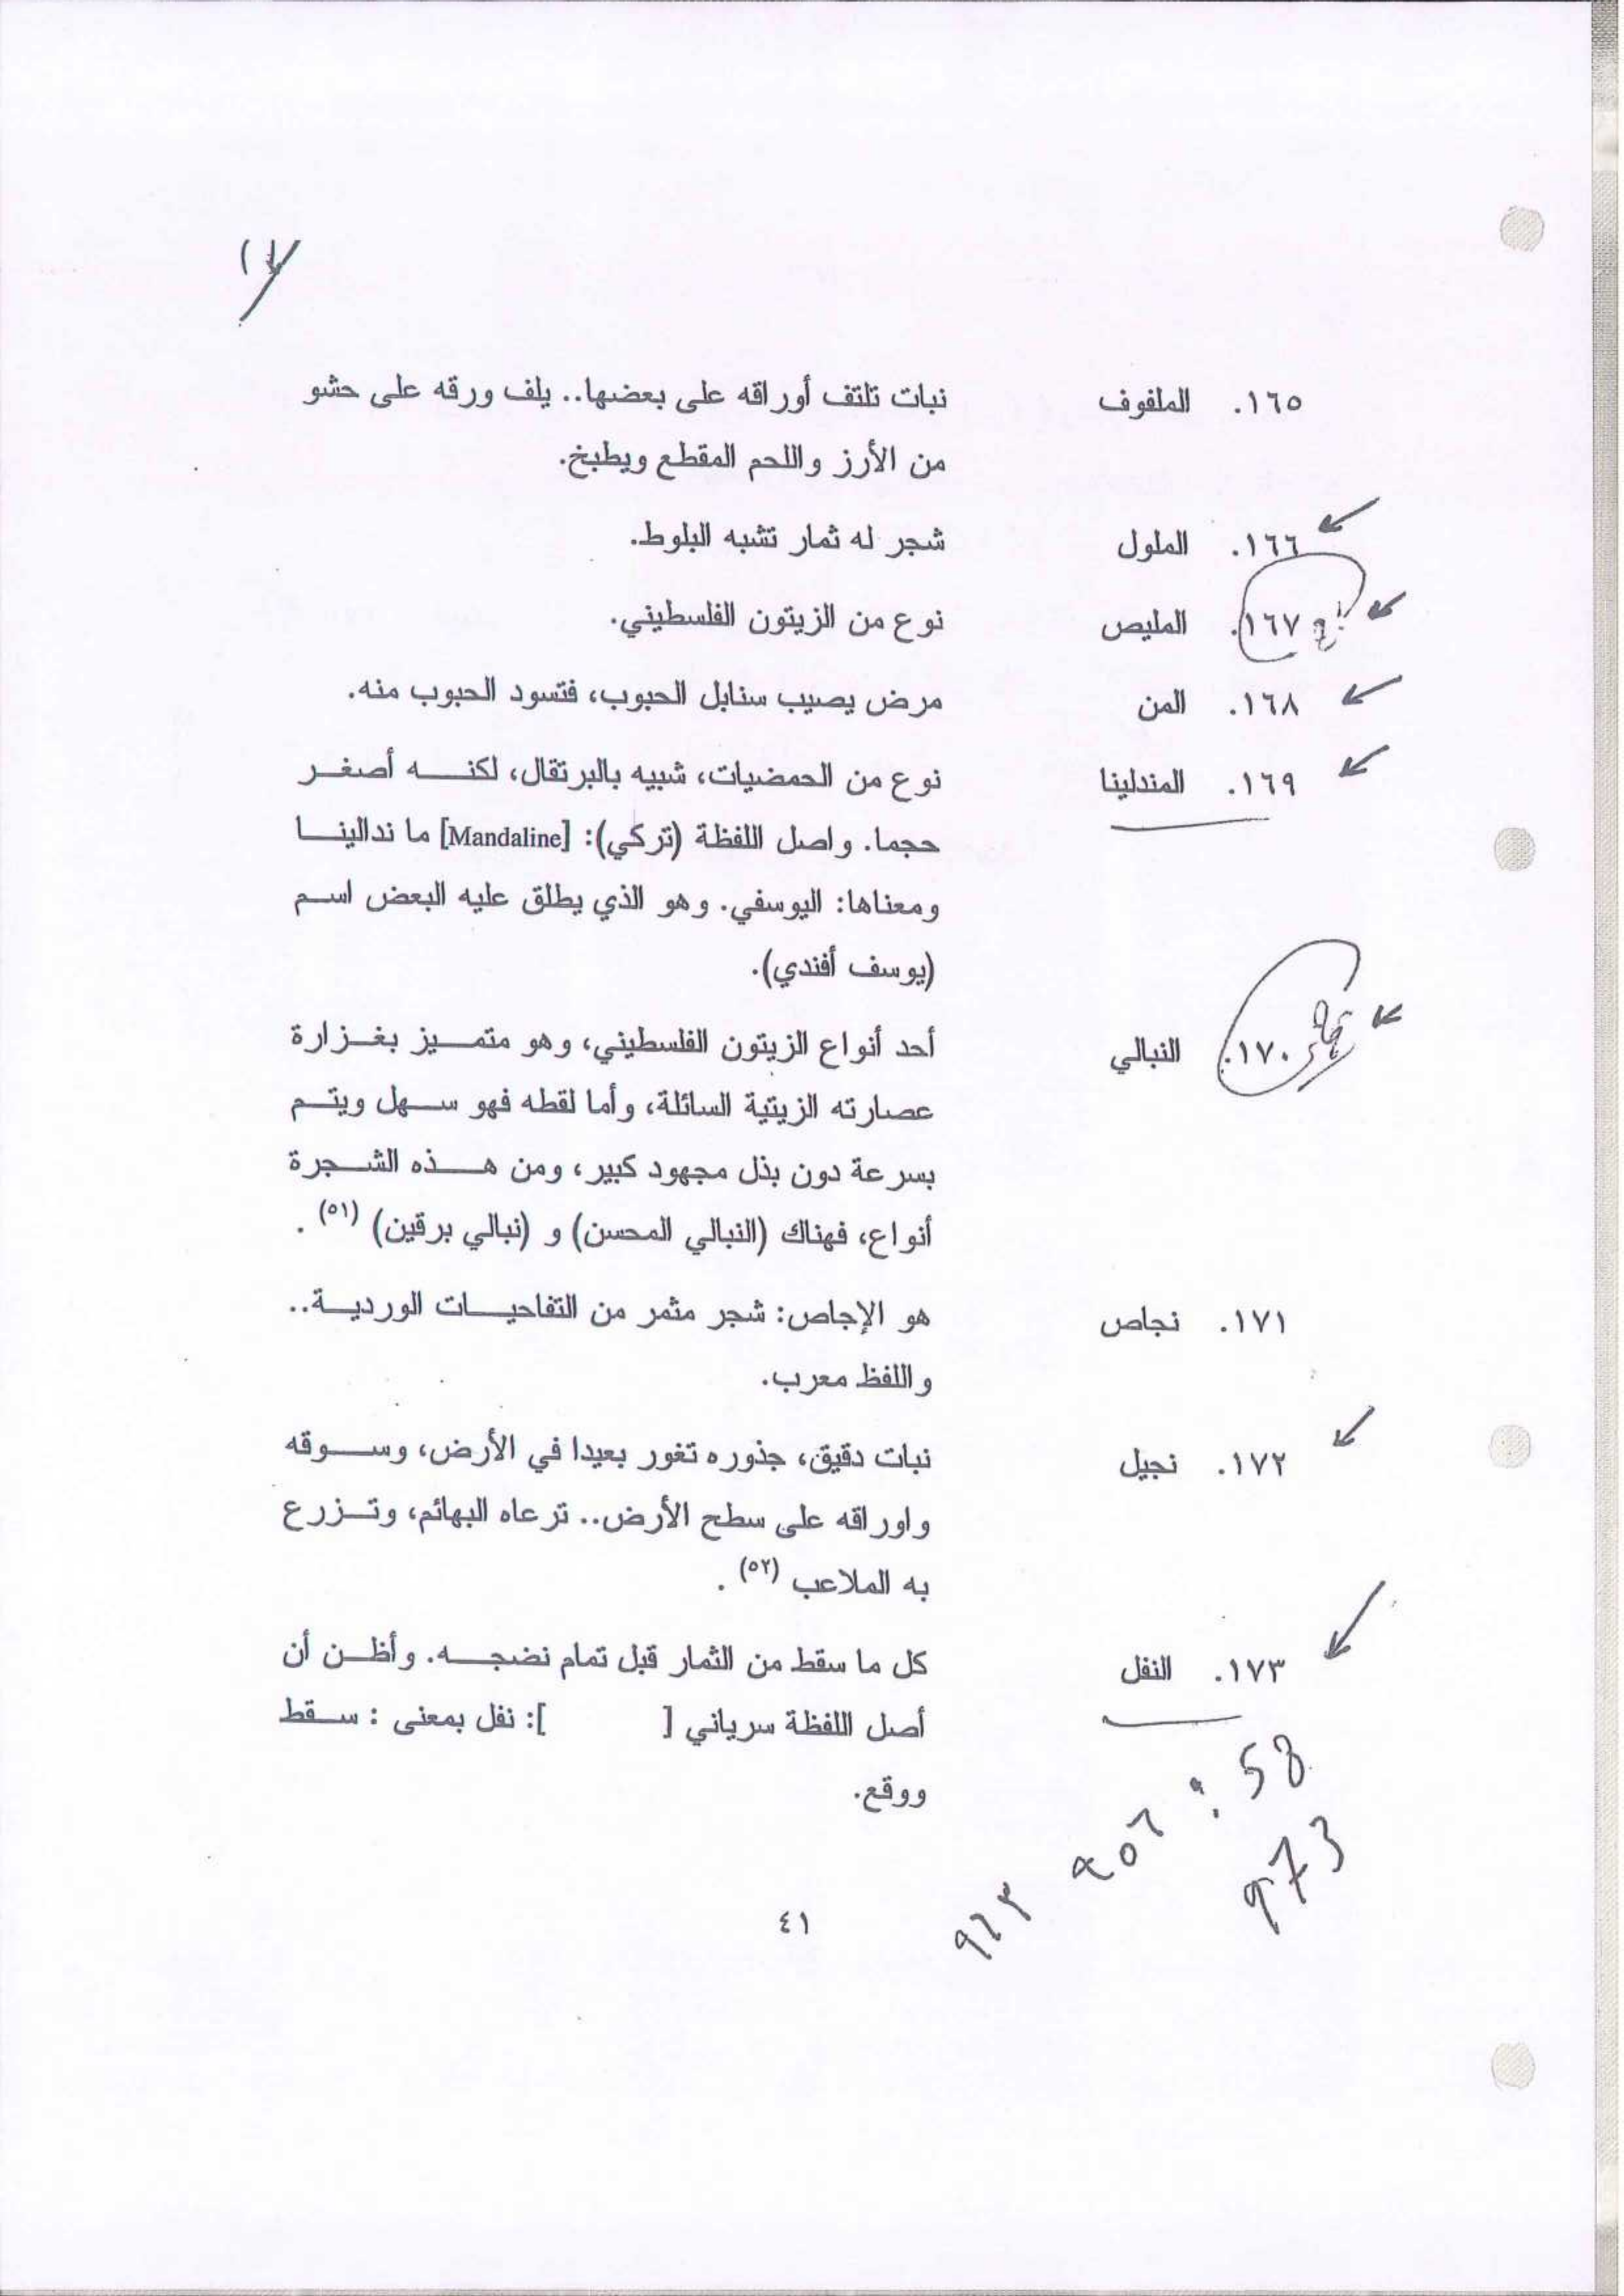 ١٦٥. الملفوف نبات تلتف أوراقه على بعضها.. يلف ورقه على حشو
من الأرز واللحم المقطع ويطبخ.
١٦٦. الملول شجر له ثمار تشبه البلوط.
١٦٧. المليص نوع من الزيتون الفلسطيني.
١٦٨. المن مرض يصيب سنابل الحبوب، فتسود الحبوب منه.
١٦٩. المندلينا نوع من الحمضيات، شبيه بالبرتقال، لكنه أصغر
حجما. واصل اللفظة (تركي): [Mandaline] ما ندالينا
ومعناها: اليوسفي. وهو الذي يطلق عليه البعض اسم
(يوسف أفندي).
١٧٠. النبالي أحد أنواع الزيتون الفلسطيني، وهو متميز بغزارة
عصارته الزيتية السائلة، وأما لقطه فهو سهل ويتم
بسرعة دون بذل مجهود كبير، ومن هذه الشجرة
أنواع، فهناك (النبالي المحسن) و (نبالي برقين) (٥١) .
١٧١. نجاص هو الإجاص: شجر مثمر من التفاحيات الوردية..
واللفظ معرب.
١٧٢. نجيل نبات دقيق، جذوره تغور بعيدا في الأرض، وسوقه
واوراقه على سطح الأرض.. ترعاه البهائم، وتزرع
به الملاعب (٥٢) .
١٧٣. النفل كل ما سقط من الثمار قبل تمام نضجه. وأظن أن
أصل اللفظة سرياني [ ]: نفل بمعنى : سقط
ووقع.
58
973
٤١